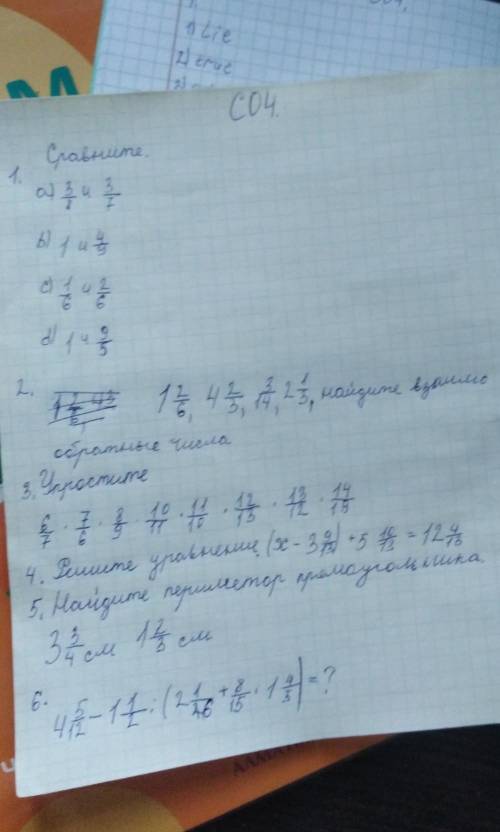 1) Lie
2) true
СО4.
1. Сравните.
a) 3/8 и 3/7
b) 1 и 4/9
c) 1/6 и 2/6
d) 1 и 9/5
2. 1 2/6, 4 2/3, 3/14, 2 1/3, найдите взаимно
обратные числа
3. Упростите
6/7 · 7/6 · 8/9 · 10/11 · 11/10 · 12/13 · 13/12 · 14/15
4. Решите уравнение (x - 3 9/13) + 5 10/13 = 12 4/13
5. Найдите периметр прямоугольника.
3 3/4 см 1 2/3 см
6. 4 5/12 - 1 1/2 : (2 1/6 + 8/15 · 1 4/5) = ?